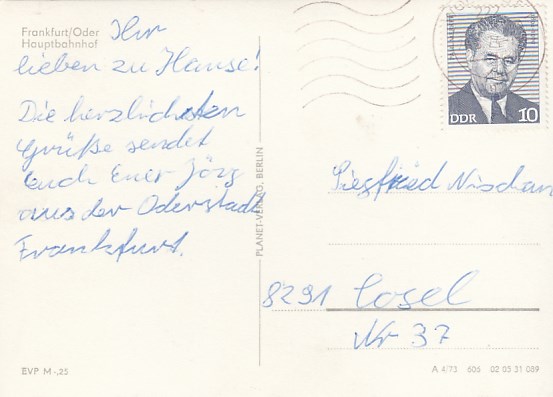 Frankfurt/Oder
Hauptbahnhof
Ihr
lieben zu Hause!
Die herzlichsten
Grüße sendet
Euch Euer Jörg
aus der Oderstadt
Frankfurt.
EVP M -,25
PLANET-VERLAG, BERLIN
DDR 10
Siegfried
8291 Cosel
Nr 37
A 4/73 606 02 03 31 089